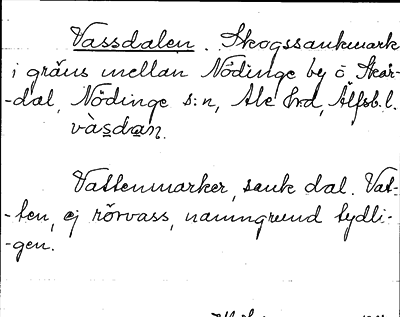 Vassdalen. Skogssankmark
i gräns mellan Nödinge by o. Skår-
-dal, Nödinge s:n, Ale hrd, Älfsb. l.
vàsdan.
Vattenmarker, sank dal. Vat-
-ten, ej rörvass, namngrund tydli-
-gen.